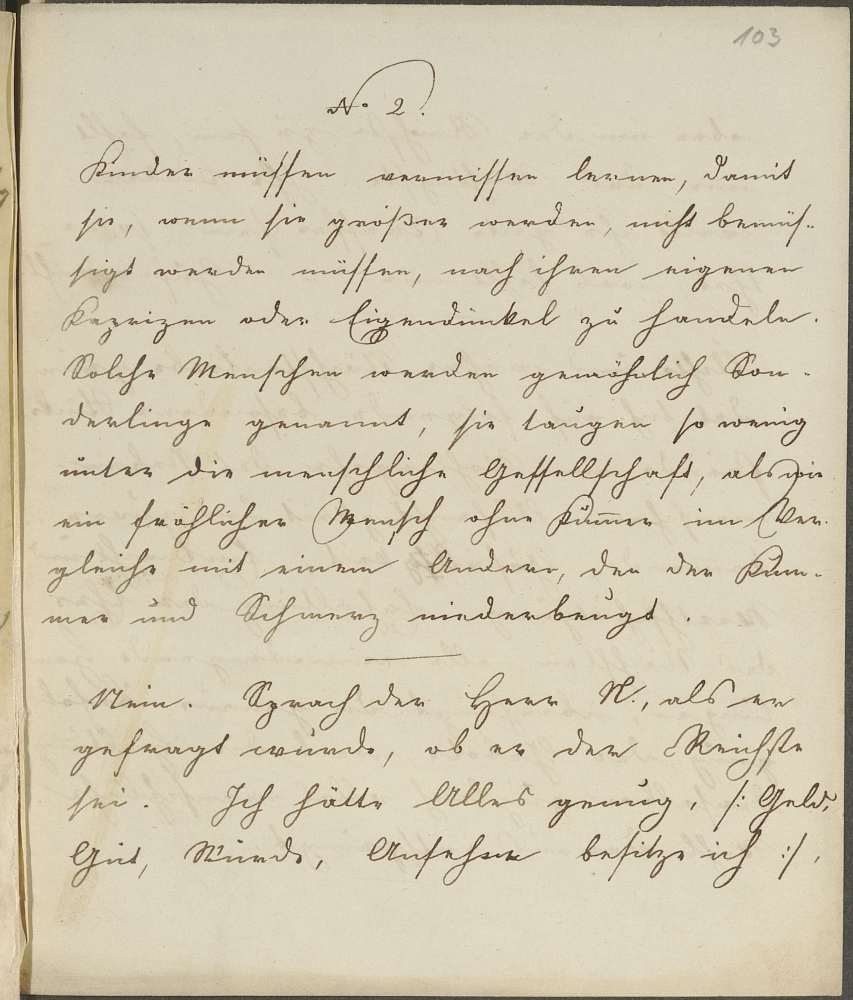 103
No 2.
Kinder müssen vermissen lernen, damit
sie, wenn sie größer werden, nicht bemüs-
sigt werden müssen, nach ihren eigenen
Kaprizen oder Eigendünkel zu handeln.
Solche Menschen werden gewöhnlich Son-
derlinge genannt, sie taugen so wenig
unter die menschliche Gessellschaft, als wie
ein fröhlicher Mensch ohne Kum̅er im Ver-
gleiche mit einem Andern, den der Kum-
mer und Schmerz niederbeugt.
Nein. Sprach der Herr N., als er
gefragt wurde, ob er der Reichste
sei. Ich hätte Alles genug, /: Geld,
Gut, Würde, Ansehen besitze ich :/,